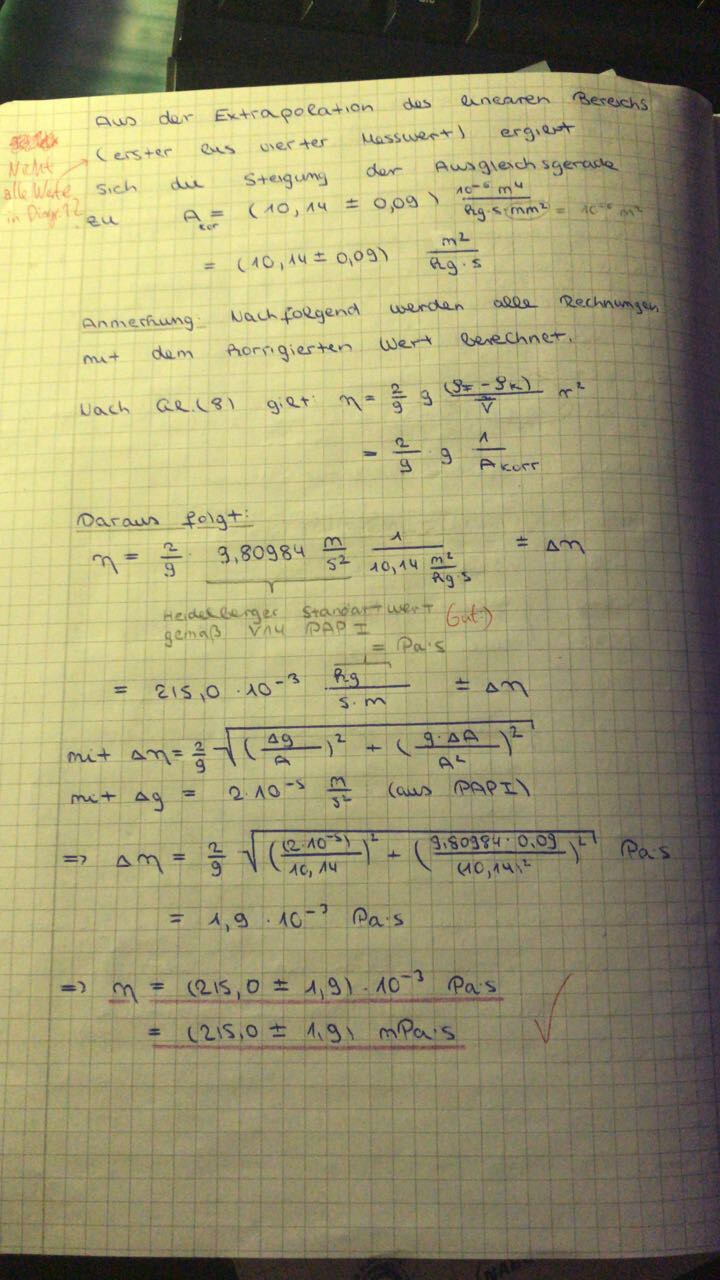 Aus der Extrapolation des linearen Bereichs
(erster bis vierter Messwert) ergibt
Nicht
alle Werte
in Diagr. 12
sich die Steigung der Ausgleichsgerade
zu A_korr = (10,14 ± 0,09) 10⁻⁶ m⁴ / (kg·s·mm²) = 10⁻⁶ m²
= (10,14 ± 0,09) m² / (kg·s)
Anmerkung: Nachfolgend werden alle Rechnungen
mit dem korrigierten Wert berechnet.
Nach Gl. (8) gilt: η = 2/9 g (ρ_F − ρ_K) / v̄ r²
= 2/9 · g 1/A_korr
Daraus folgt:
η = 2/9 · 9,80984 m/s² 1 / (10,14 m²/(kg·s)) ± Δη
Heidelberger Standartwert (gut.)
gemäß V14 PAP I
= Pa·s
= 215,0 · 10⁻³ kg / (s·m) ± Δη
mit Δη = 2/9 √((Δg/A)² + (g·ΔA/A²)²)
mit Δg = 2·10⁻⁵ m/s² (aus PAP I)
=> Δη = 2/9 √(((2·10⁻⁵)/10,14)² + (9,80984·0,09/(10,14)²)²) Pa·s
= 1,9 · 10⁻³ Pa·s
=> η = (215,0 ± 1,9) · 10⁻³ Pa·s
= (215,0 ± 1,9) mPa·s